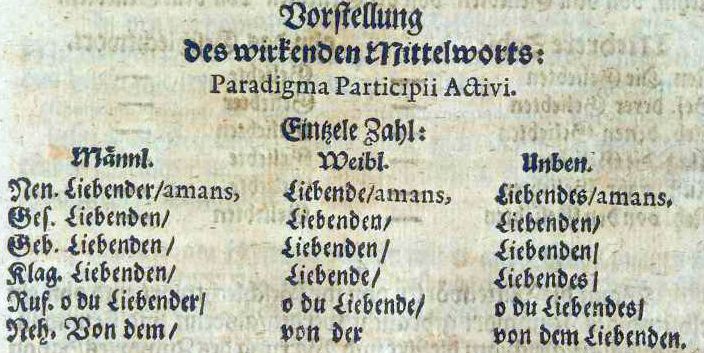 Vorstellung
des wirkenden Mittelworts:
Paradigma Participii Activi.
Eintzele Zahl:
Männl. Weibl. Unben.
Nen. Liebender/amans, Liebende/amans, Liebendes/amans,
Ges. Liebenden/ Liebenden/ Liebenden/
Geb. Liebenden/ Liebenden/ Liebenden/
Klag. Liebenden/ Liebende/ Liebendes/
Ruf. o du Liebender/ o du Liebende/ o du Liebendes/
Neh. Von dem/ von der von dem Liebenden.